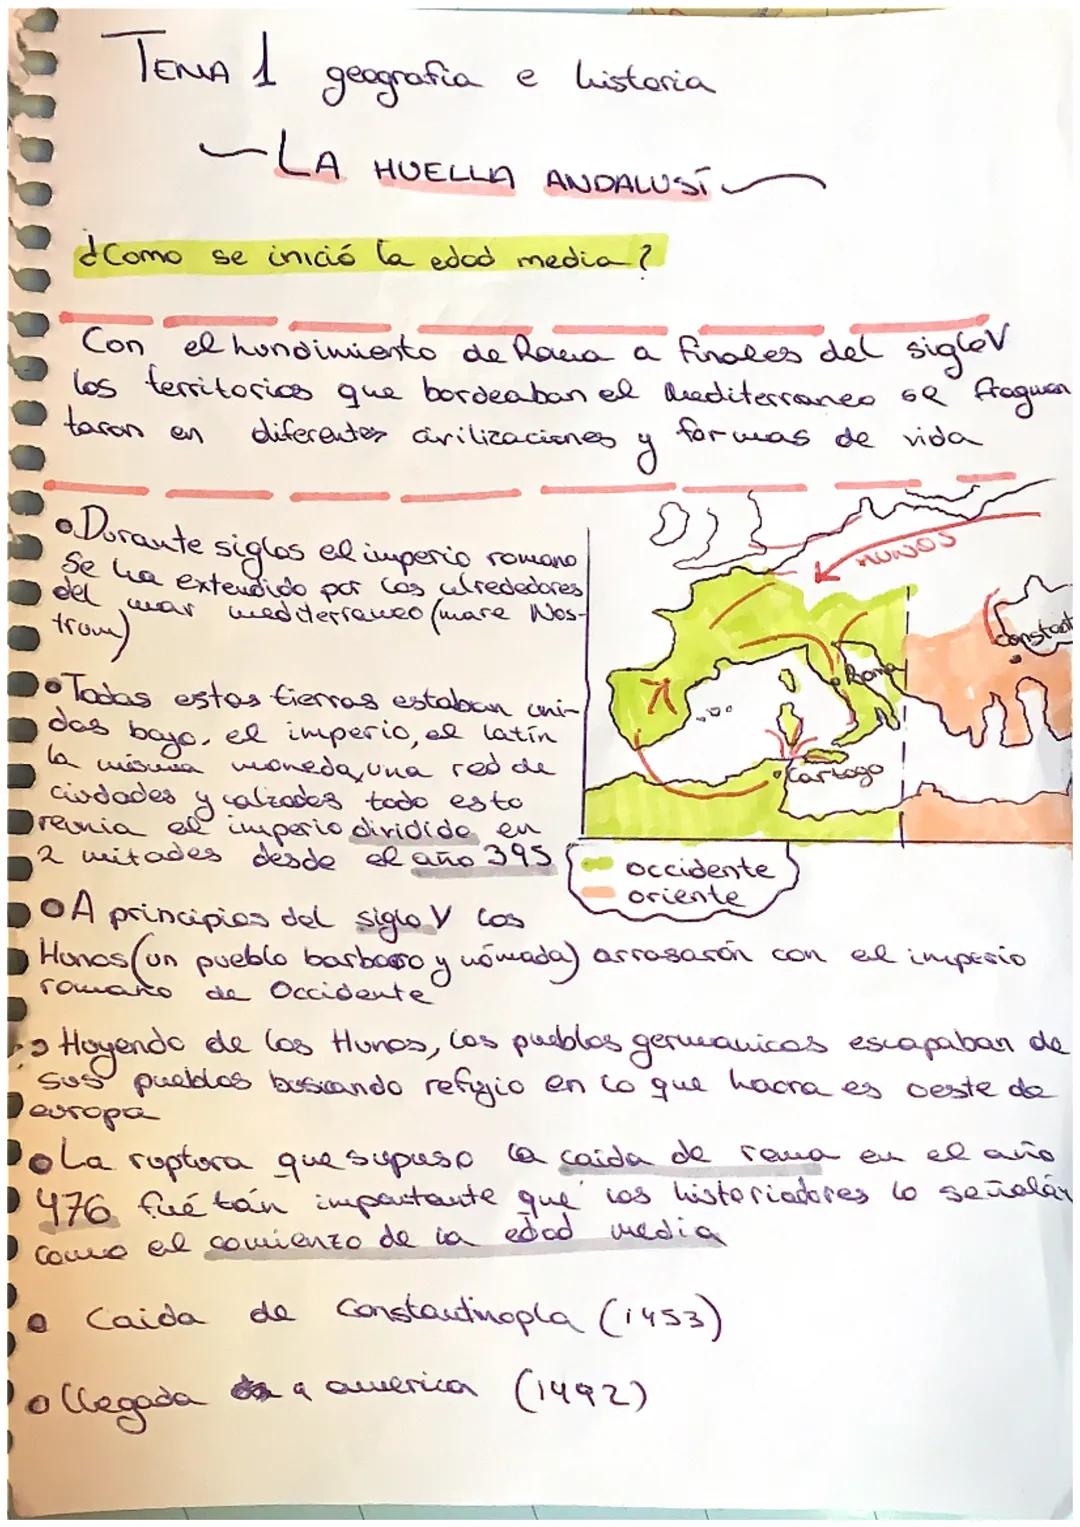 TEMA 1 geografia e historia
LA HUELLA ANDALUSÍ
¿Como se inició la edad media?
Con el hundimiento de Roma a finales del siglo V
los territorios que bordeaban el Mediterraneo se fragmen
taron en diferentes civilizaciones y formas de vida
Durante siglos el imperio romano
Se ha extendido por los alrededores
del mar mediterraneo (mare Nos-
trum)
Todas estas tierras estaban uni-
das bajo, el imperio, el latín
la misma moneda, una red de
ciudades y calzadas todo esto
reunia el imperio dividido en
2 mitades desde el año 395
HUNOS
Constant
Roma
Cartago
occidente
oriente
A principios del siglo V los
Hunos (un pueblo barbaro y nómada) arrasarón con el imperio
romano de Occidente
Huyendo de los Hunos, los pueblos germanicos escapaban de
sus pueblos buscando refugio en lo que hacra es oeste de
europa
La ruptura que supuso la caida de roma en el año
476 fué tán importante que los historiadores lo señalán
como el comienzo de la edad media
Caida de Constantinopla (1453)
llegada a america (1492)